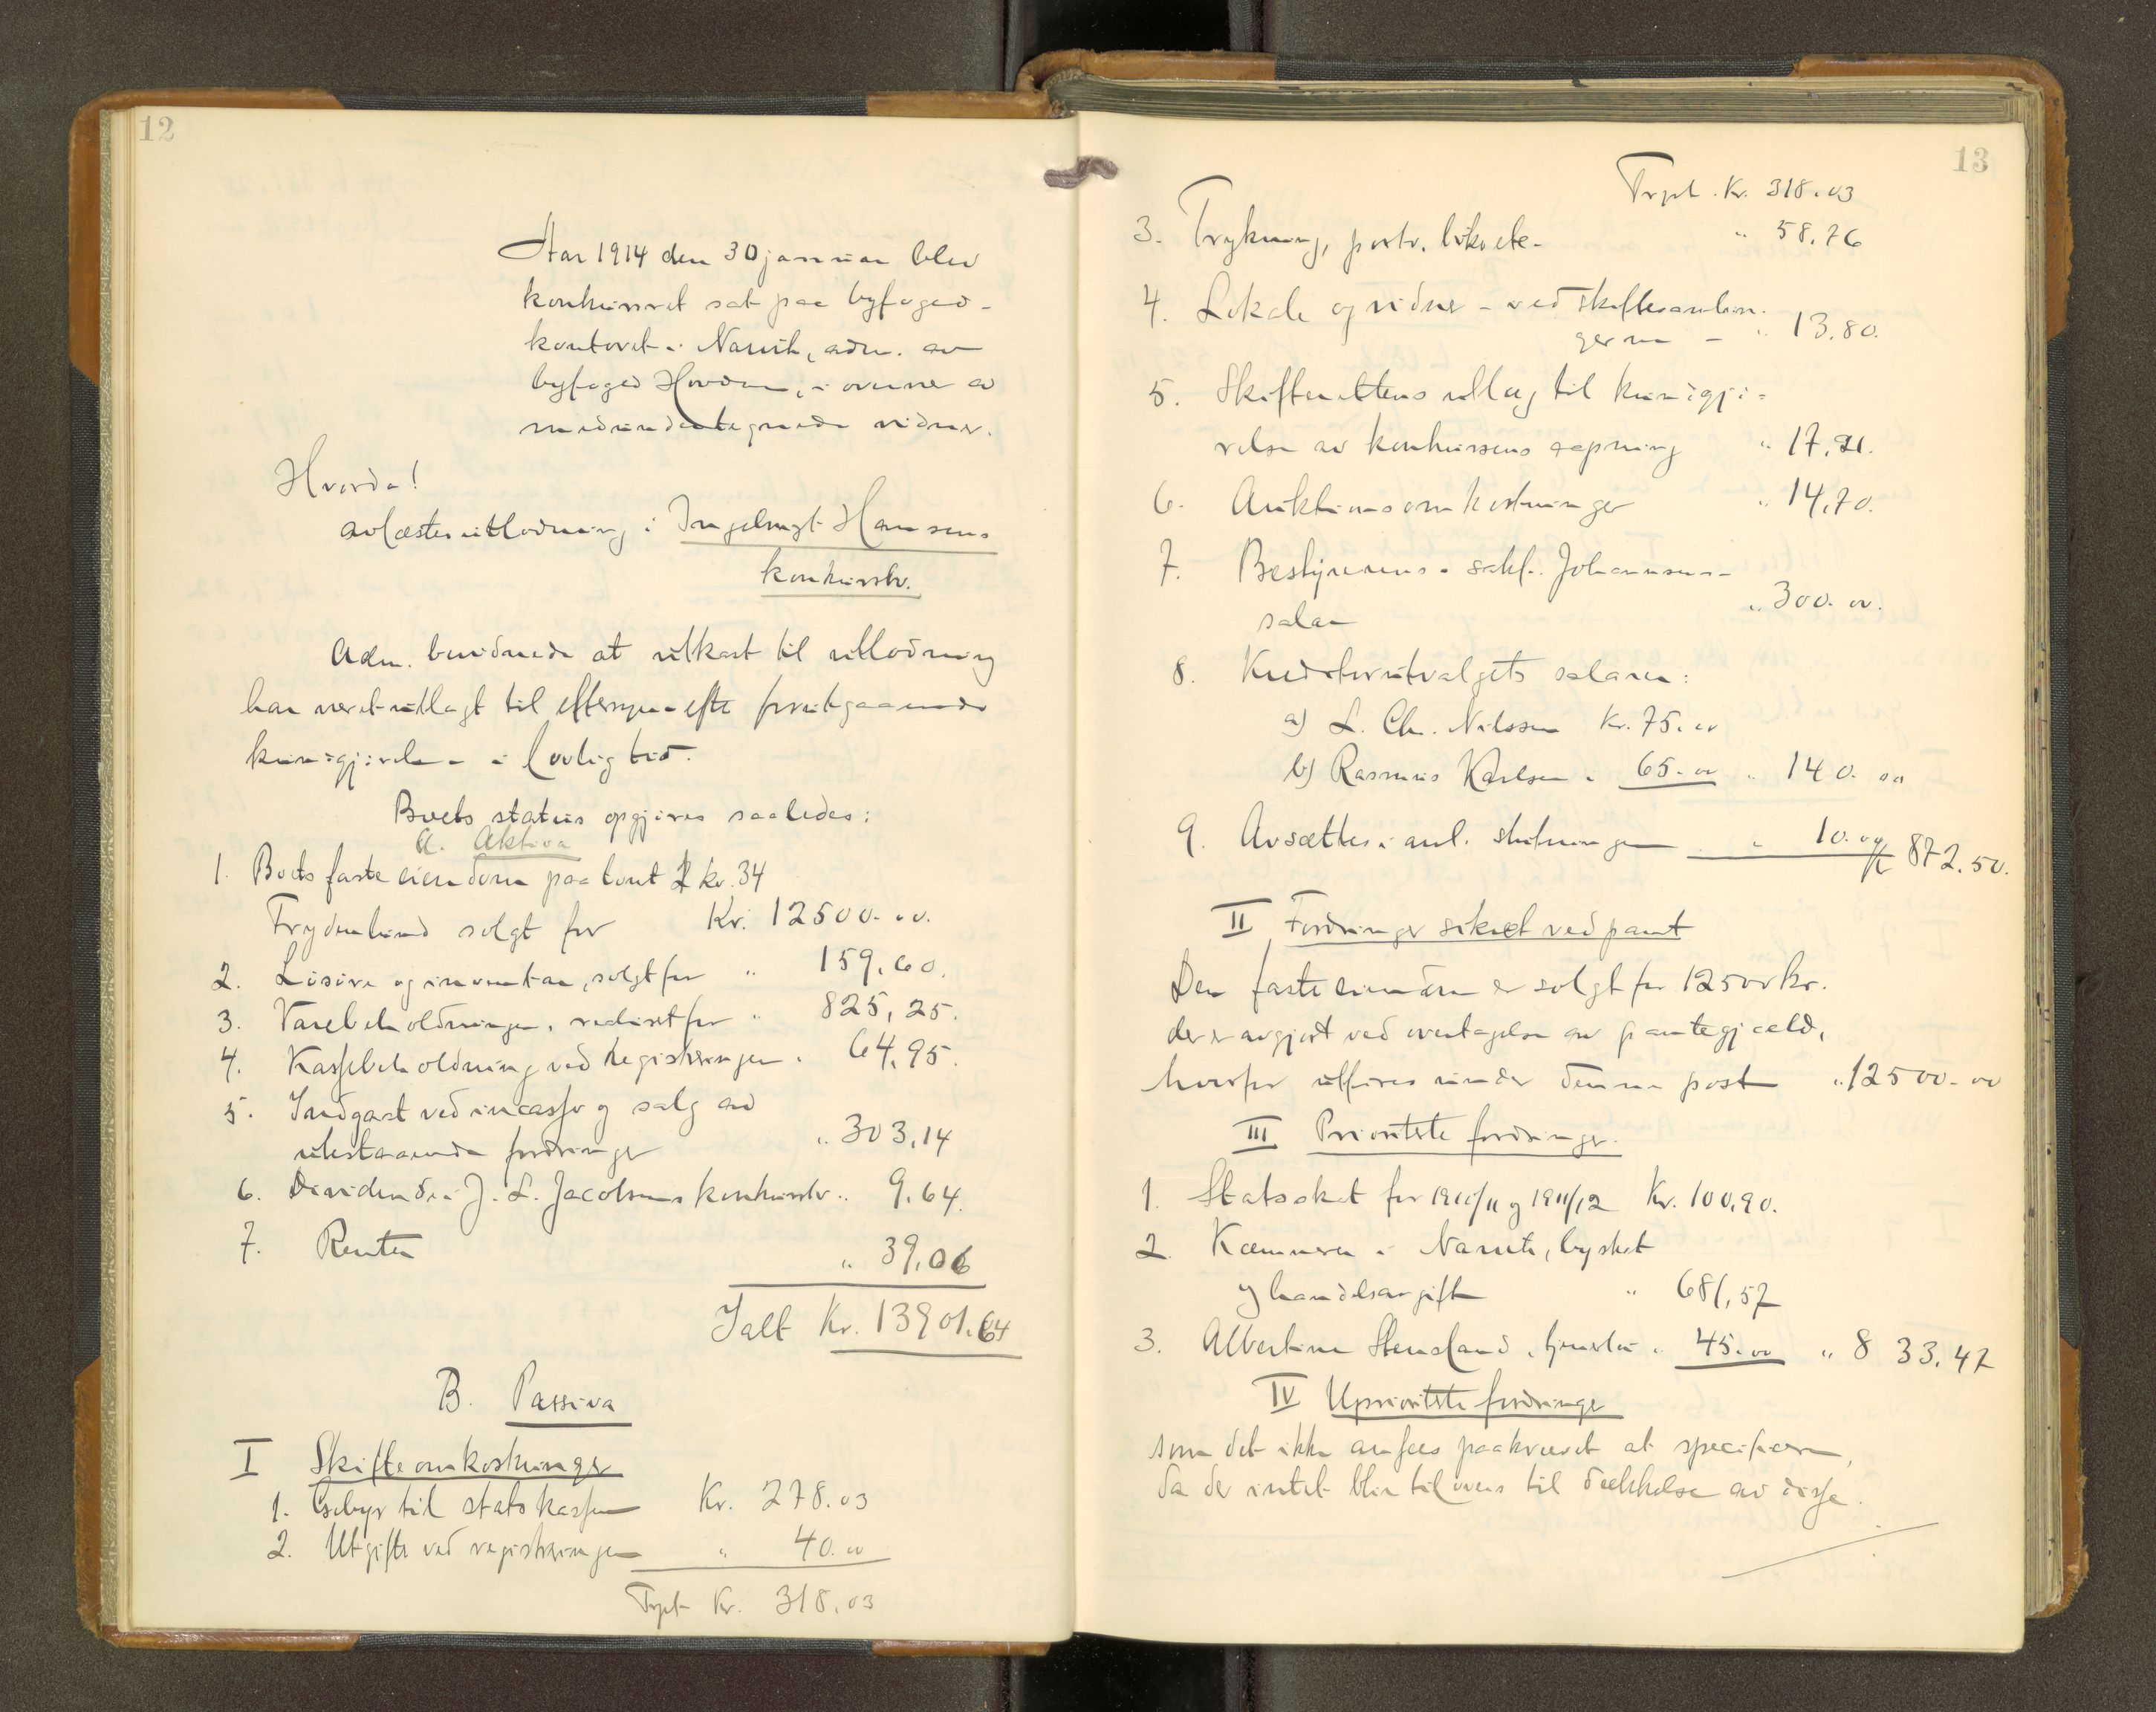 12
Aar 1914 den 30 januar blev
konkursret sat paa byfoged-
kontoret i Narvik, adm. av
byfoged Hovdan, i overvær av
medundertegnede vidner.
Hvorda!
avlæstes utlodning i Ingebrigt Hansens
konkursbo.
Adm. bevidnede at utkast til utlodning
har været utlagt til eftersyn efter forutgaaende
kundgjørelse i lovlig tid.
Boets status opgjøres saaledes:
A. Aktiva
1. Boets faste eiendom paa tomt 2 kv. 34
Frydenlund solgt for Kr. 12500.00.
2. Løsøre og inventar, solgt for " 159,60.
3. Varebeholdningen, realisert for " 825,25.
4. Kassebeholdning ved registreringen " 64,95.
5. Indgaat ved incasso og salg av
utestaaende fordringer " 303,14
6. Dividende i J. L. Jacobsens konkursbo " 9,64.
7. Renter " 39,06
Ialt Kr. 13901.64
B. Passiva
I Skifteomkostninger
1. Gebyr til statskassen Kr. 278.03
2. Utgifter ved registreringen " 40.00
Trpt. Kr. 318.03
13
Trpt. Kr. 318.03
3. Trykning, porto, etc. " 58,76
4. Lokale og vidner ved skiftesamlin-
gerne " 13,80.
5. Skifterettens utlæg til kundgjø-
relse av konkursens aapning " 17,21.
6. Auktionsomkostninger " 14,70.
7. Bestyrerens, sakf. Johannsens
salær " 300.00.
8. Kreditorutvalgets salærer:
a) L. Chr. Nilssen Kr. 75.00
b) Rasmus Karlsen " 65.00 " 140.00
9. Avsættes i anl. slutningen " 10.00 872.50.
II Fordringer sikret ved pant
Den faste eiendom er solgt for 12500 kr.
der er avgjort ved overtagelse av pantegjæld,
hvorfor utføres under denne post " 12500.00
III Prioriterte fordringer.
1. Statsskat for 1910/11 og 1911/12 Kr. 100,90.
2. Kæmneren i Narvik, byskat
og handelsavgift " 681,57
3. Albertine Stensland, tjenerløn " 45.00 " 833.47
IV Uprioriterte fordringer
som det ikke ansees paakrævet at specificere,
da der intet blir tilovers til dækkelse av disse.